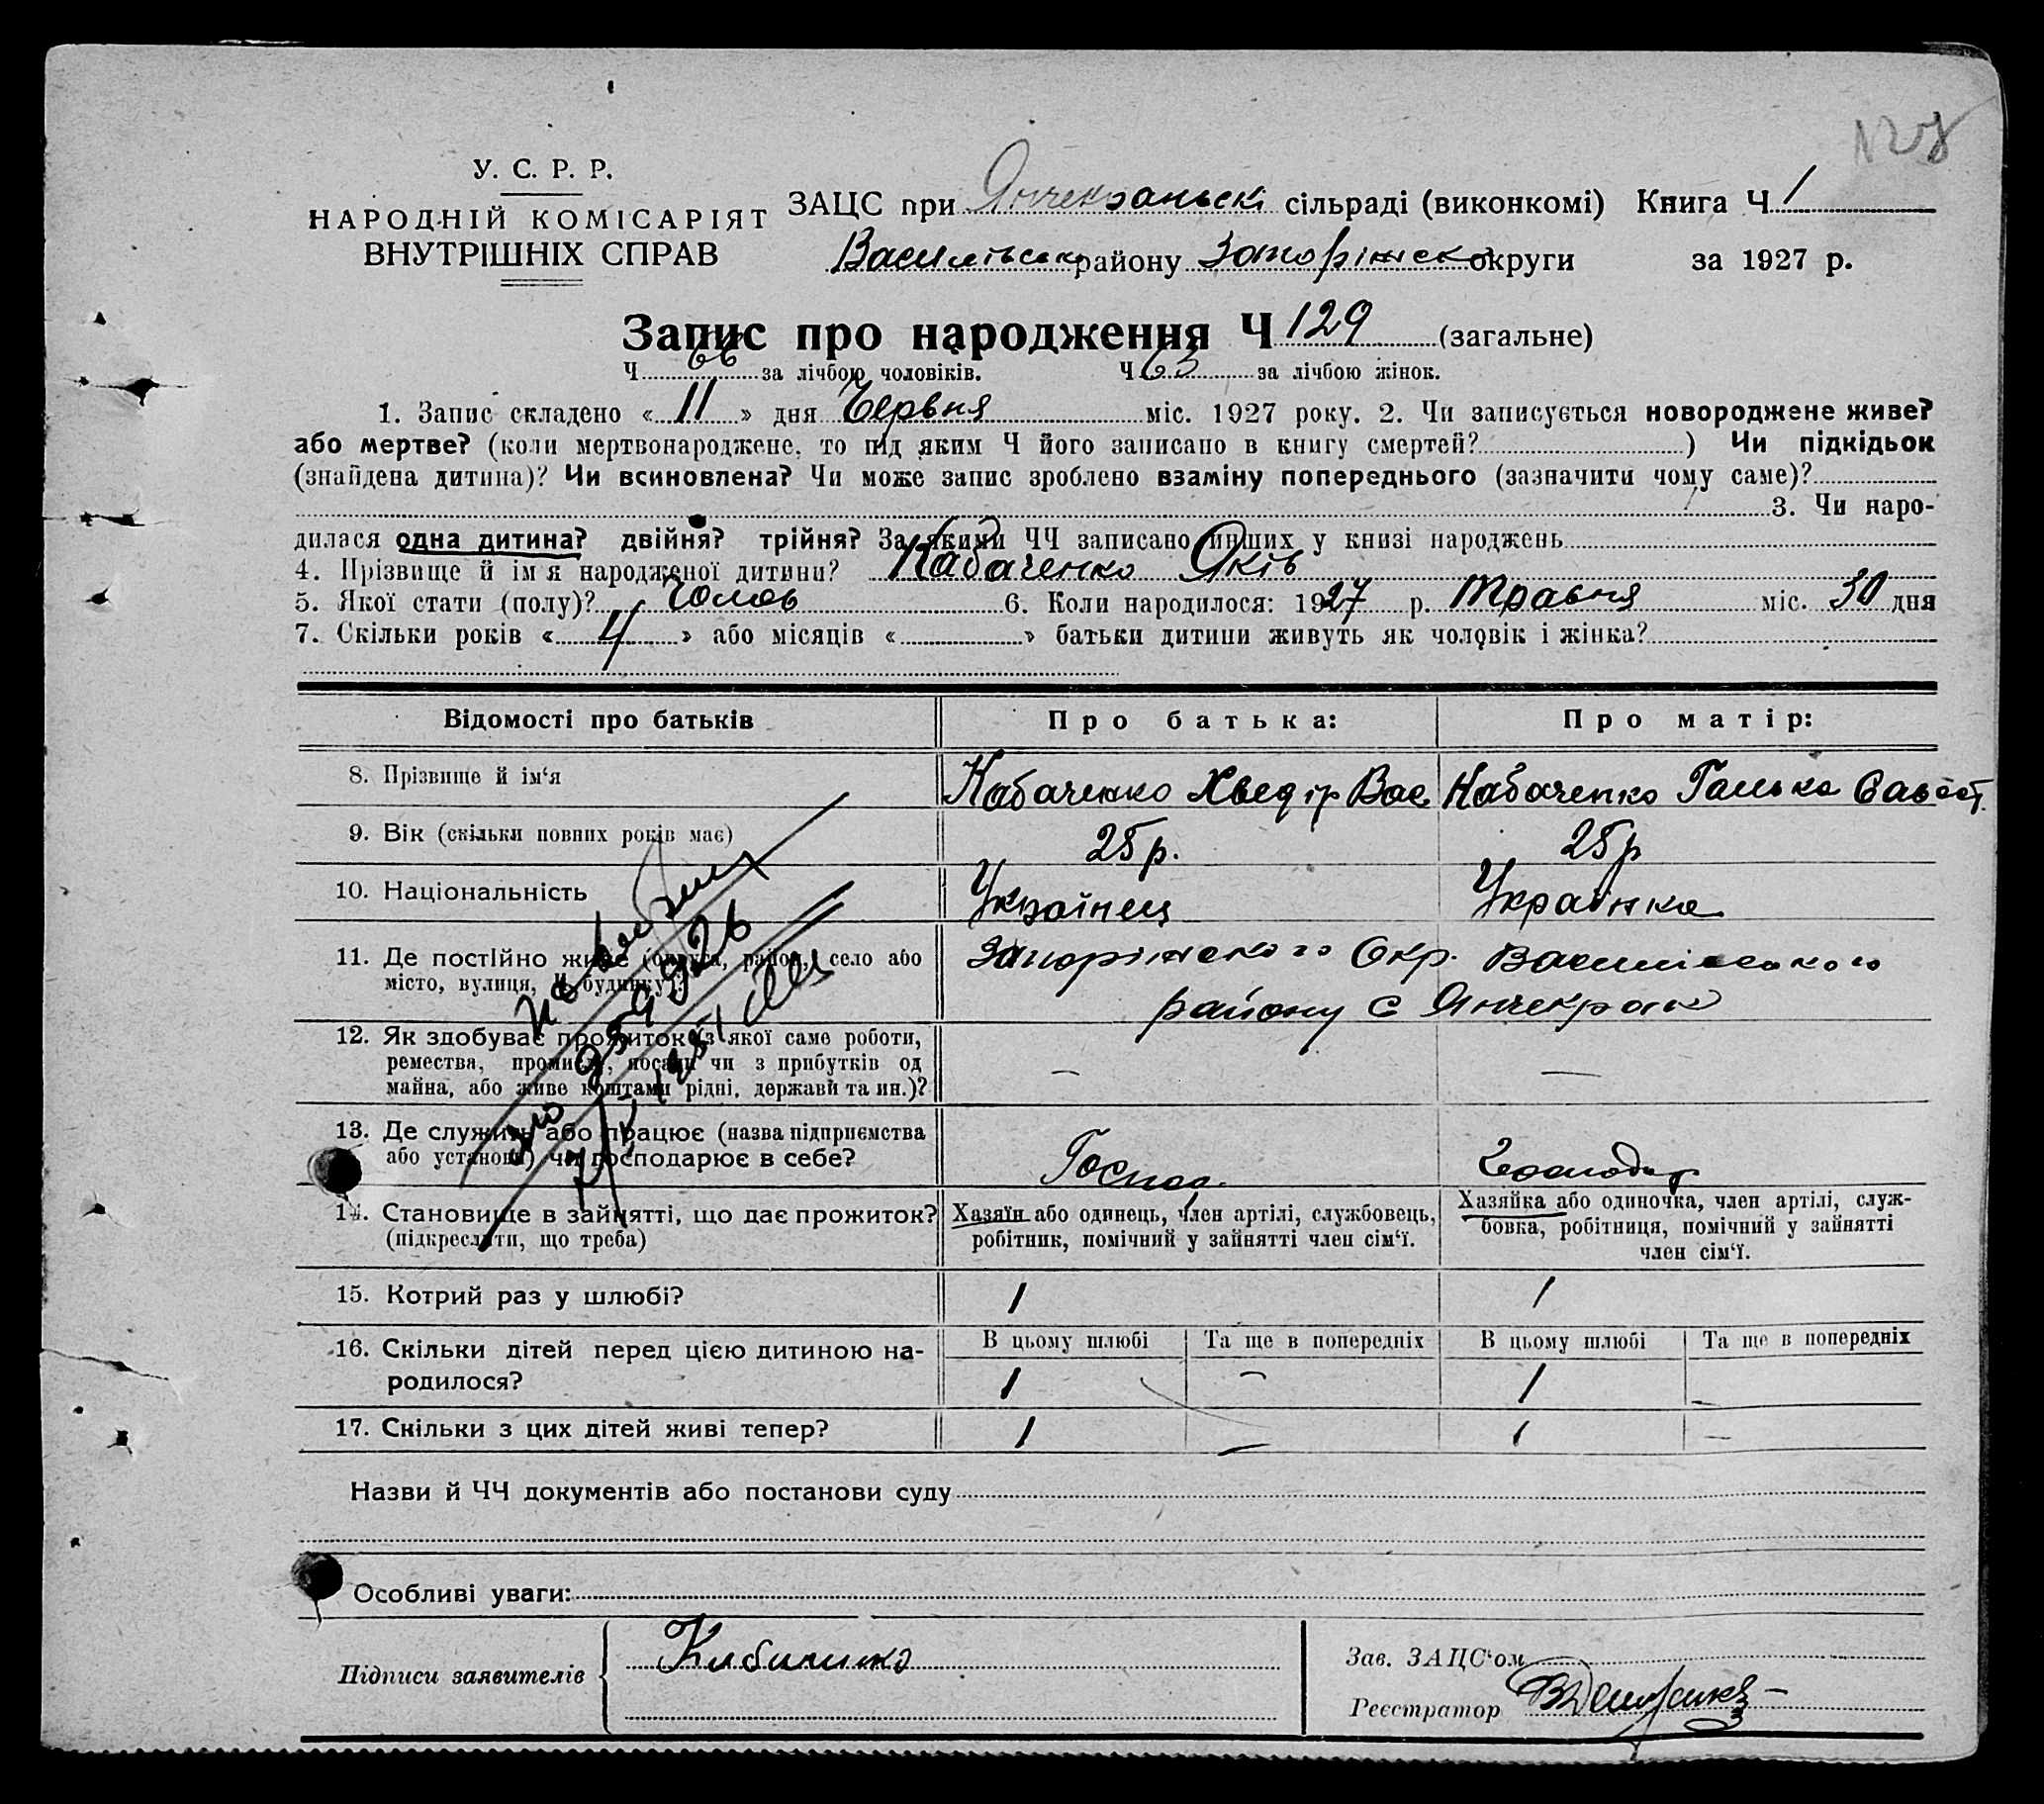 У. С. Р. Р.
НАРОДНІЙ КОМІСАРІЯТ
ВНУТРІШНІХ СПРАВ
ЗАЦС при Янчекраньскі сільраді (виконкомі) Книга Ч 1
Василівськ району Запоріжськ округи за 1927 р.
Запис про народження Ч 129 (загальне)
Ч 66 за лічбою чоловіків. Ч 63 за лічбою жінок.
1. Запис складено « 11 » дня Червня міс. 1927 року. 2. Чи записується новороджене живе?
або мертве? (коли мертвонароджене, то під яким Ч його записано в книгу смертей? ) Чи підкідьок
(знайдена дитина)? Чи всиновлена? Чи може запис зроблено взаміну попереднього (зазначити чому саме)?
3. Чи наро-
дилася одна дитина? двійня? трійня? За якими ЧЧ записано инших у книзі народжень
4. Прізвище й імя народженої дитини? Кабаченко Яків
5. Якої стати (полу)? Чолов 6. Коли народилося: 1927 р. Травня міс. 30 дня
7. Скільки років « 4 » або місяців « » батьки дитини живуть як чоловік і жінка?
Відомості про батьків Про батька: Про матір:
8. Прізвище й ім‘я Кабаченко Хведір Вас Кабаченко Галька Савост.
9. Вік (скільки повних років має) 25 р. 25 р
10. Національність Українец Українка
11. Де постійно живе (округа, район, село або
місто, вулиця, Ч будинку)? Запоріжского Окр. Василівського
району с Янчекрак
12. Як здобуває прожиток (з якої саме роботи,
ремества, промислу, посади чи з прибутків од
майна, або живе коштами рідні, держави та ин.)? — —
13. Де служить або працює (назва підприємства
або установи) чи господарює в себе? Господ. Господар
14. Становище в зайнятті, що дає прожиток?
(підкреслити, що треба)
Хазяїн або одинець, член артілі, службовець,
робітник, помічний у зайнятті член сім‘ї.
Хазяйка або одиночка, член артілі, служ-
бовка, робітниця, помічний у зайнятті
член сім‘ї.
15. Котрий раз у шлюбі? 1 1
16. Скільки дітей перед цією дитиною на-
родилося?
В цьому шлюбі Та ще в попередніх В цьому шлюбі Та ще в попередніх
1 — 1 —
17. Скільки з цих дітей живі тепер? 1 — 1 —
Назви й ЧЧ документів або постанови суду
Особливі уваги:
Підписи заявителів
Зав. ЗАЦС‘ом
Реєстратор